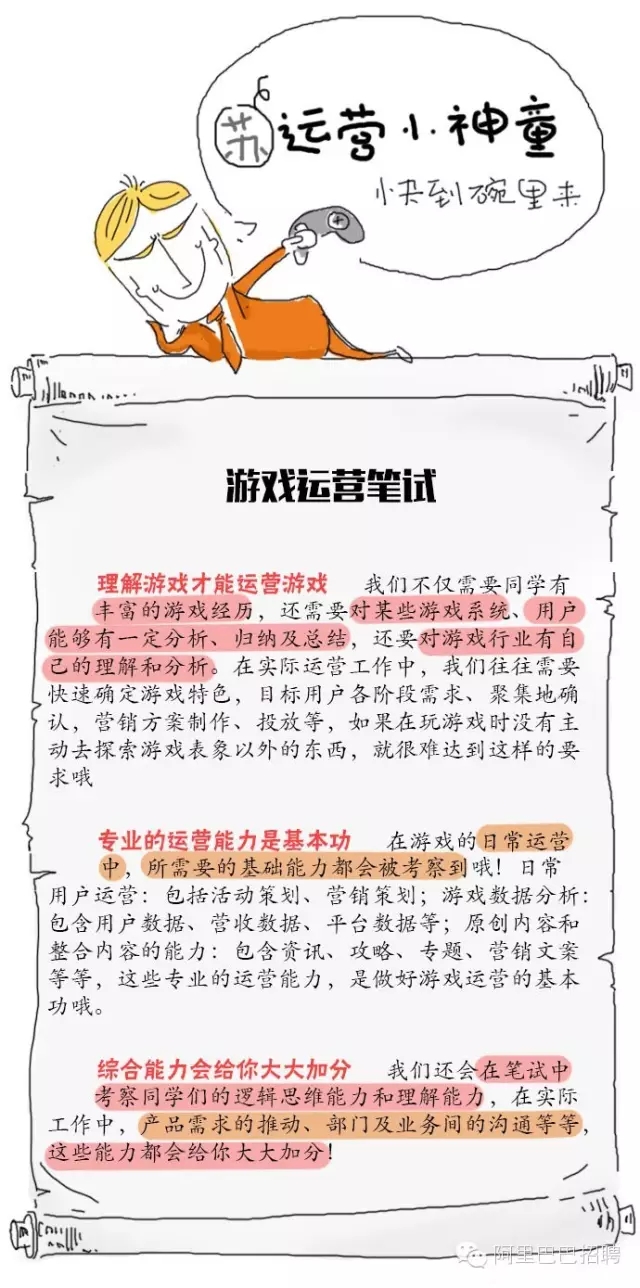 苏运营小神童
快到碗里来
游戏运营笔试
理解游戏才能运营游戏 我们不仅需要同学有
丰富的游戏经历，还需要对某些游戏系统、用户
能够有一定分析、归纳及总结，还要对游戏行业有自
己的理解和分析。在实际运营工作中，我们往往需要
快速确定游戏特色，目标用户各阶段需求、聚集地确
认，营销方案制作、投放等，如果在玩游戏时没有主
动去探索游戏表象以外的东西，就很难达到这样的要
求哦
专业的运营能力是基本功 在游戏的日常运营
中，所需要的基础能力都会被考察到哦！日常
用户运营：包括活动策划、营销策划；游戏数据分析：
包含用户数据、营收数据、平台数据等；原创内容和
整合内容的能力：包含资讯、攻略、专题、营销文案
等等，这些专业的运营能力，是做好游戏运营的基本
功哦。
综合能力会给你大大加分 我们还会在笔试中
考察同学们的逻辑思维能力和理解能力，在实际
工作中，产品需求的推动、部门及业务间的沟通等等，
这些能力都会给你大大加分！
阿里巴巴招聘